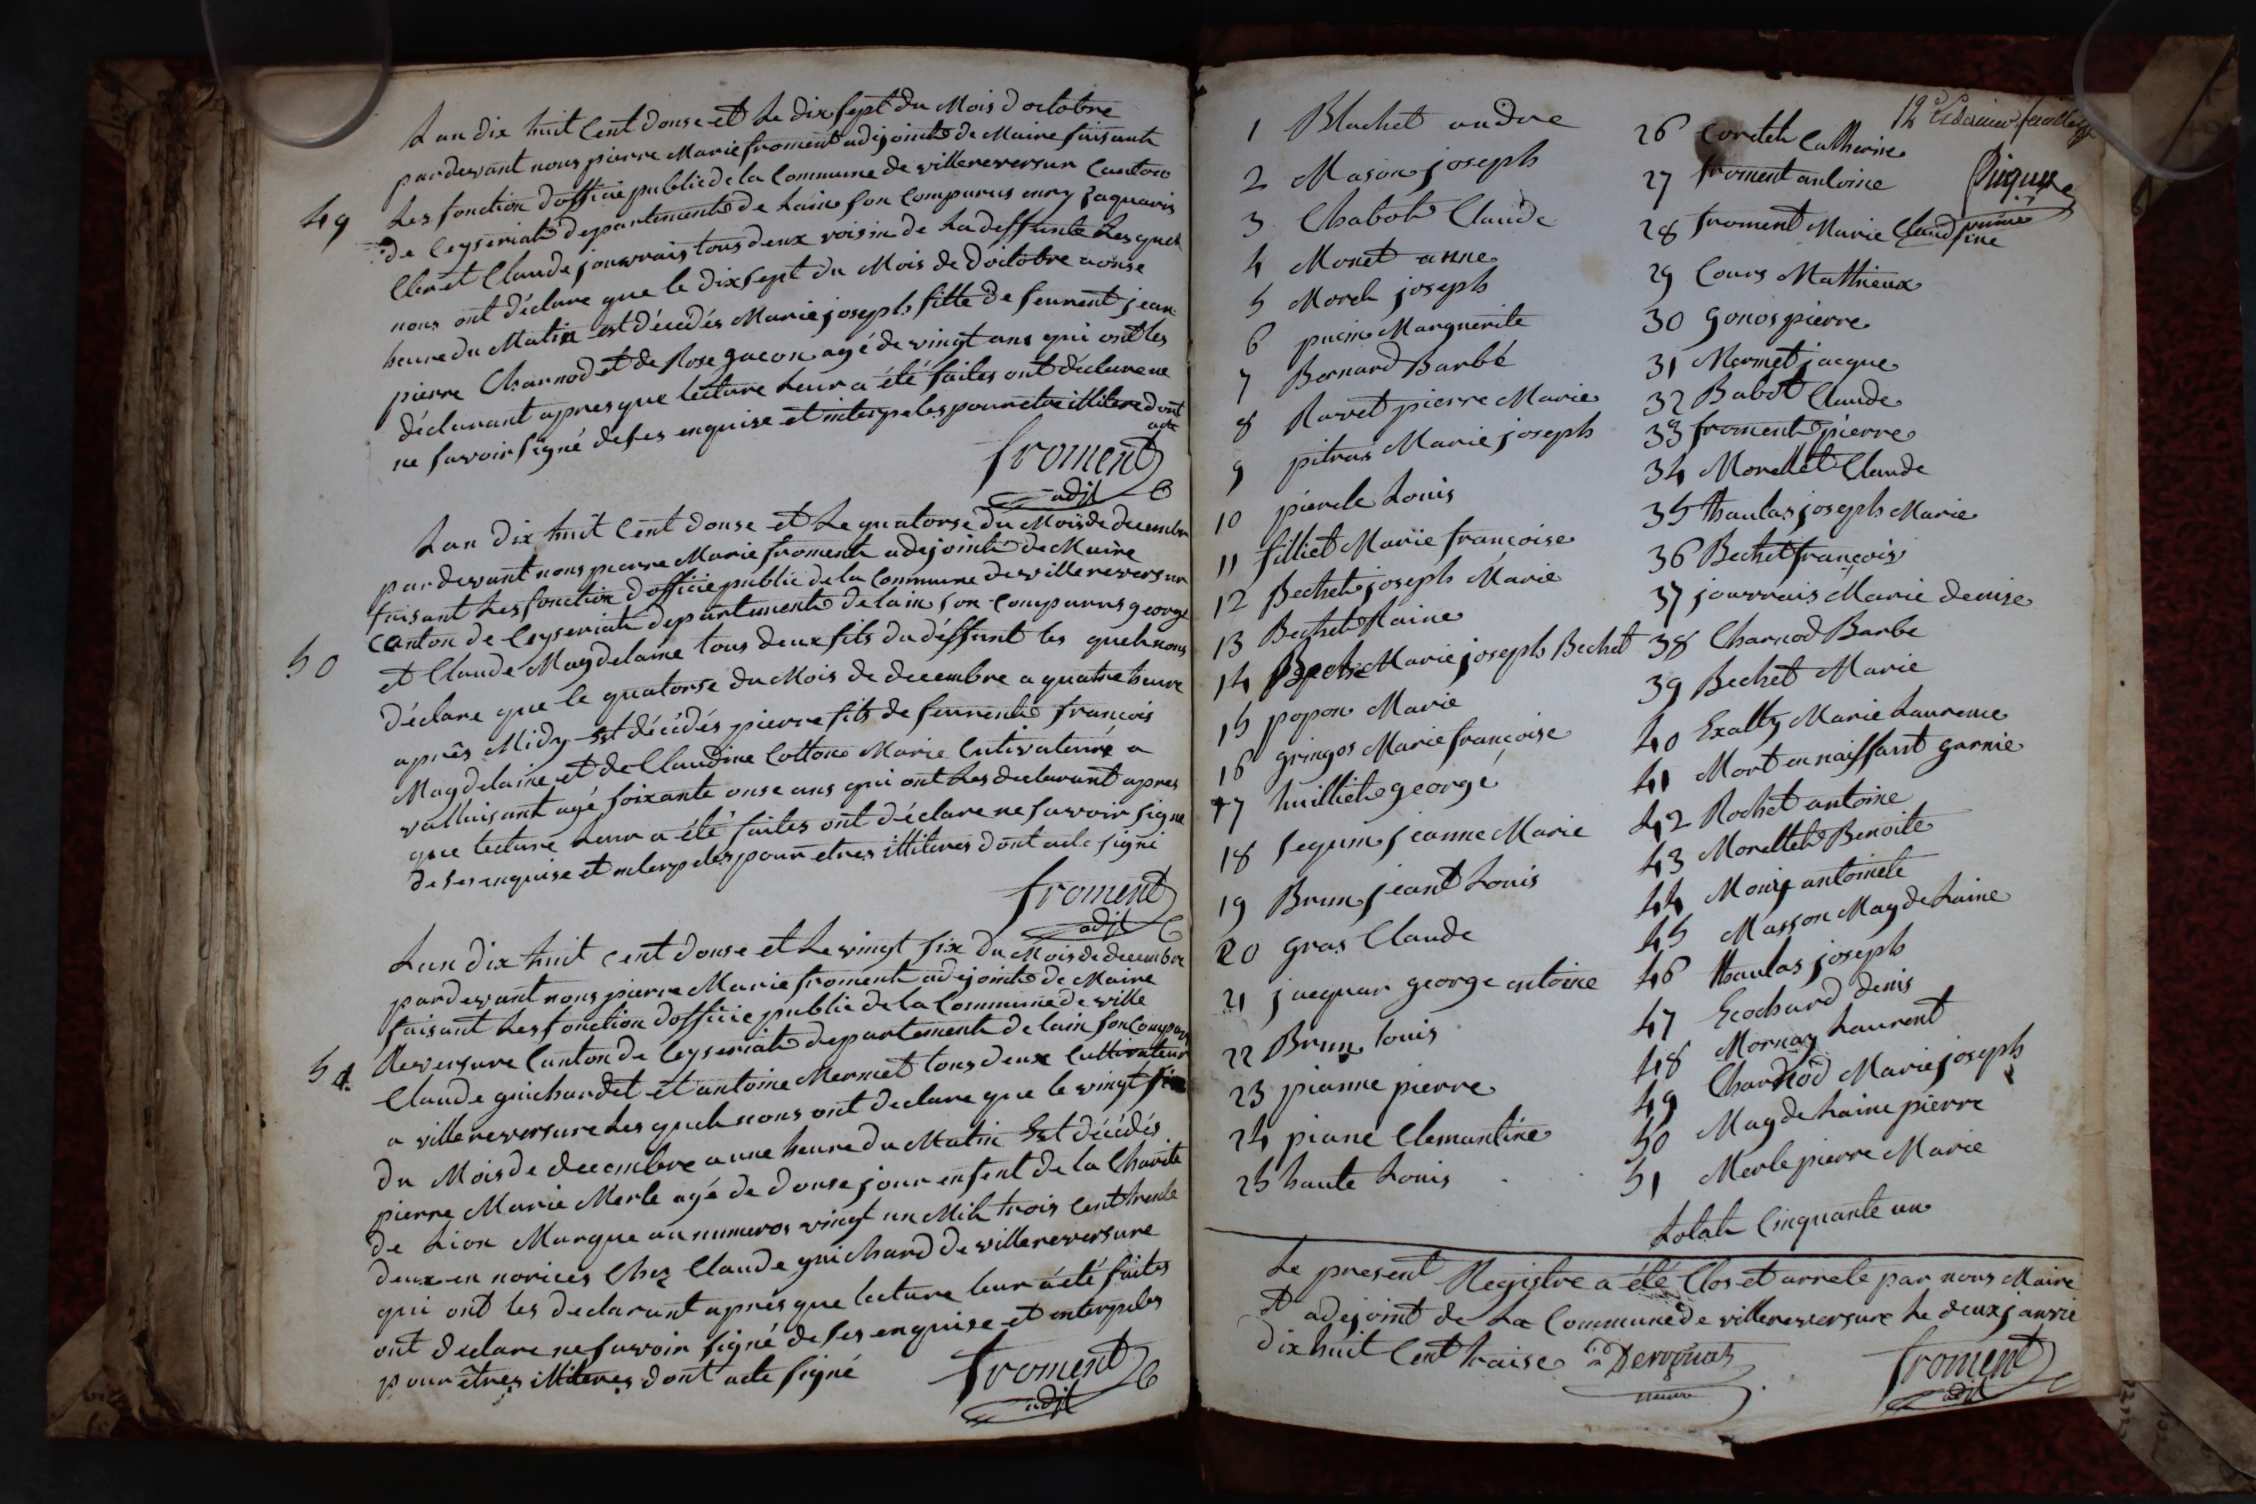 Lan dix huit Cent douse et Le dix sept du Mois doctobre
pardevant nous pierre Marie froment adejoint de Maire faisant
Les fonction dofficie public de la Commune de villereversur Canton
49
de Ceyseriat departement de Lain son Comparus
et Claude jouvrais tous deux voisin de La deffunte Lesquel
nous ont déclare que le dix sept du Mois de doctobre a onse
heure du Matin est décédés Marie joseph fille de feurent jean
pierre Charnod et de Rose gacon agé de vingt ans qui ont les
déclarant apres que lecture Leur a été faites ont déclare ne
ne savoir signé de ses enquise et interpeles pour etre illitere dont
acte
froment
adjt
Lan dix huit Cent douse et Le quatorse du Mois de decembre
par devant nous pierre Marie froment adejoint de Maire
faisant Les fonction dofficie public de la Commune de villereversur
Canton de Ceyseriat departement de lain son Comparus george
50
et Claude Magdelaine tous deux fils du déffunt les quels nous
déclare que le quatorse du Mois de decembre a quatre heure
après Midy Est décédés pierre fils de feurent françois
Magdelaine et de Claudine Cottone Marie Cutivateure a
valluisant agé soixante onse ans qui ont Les declarant apres
que lecture Leur a été faites ont déclare ne savoir signe
de ses enquise et interpeles pour etres illiteres dont acte signé
froment
adjt
Lan dix huit Cent douse et Le vingt six du Mois de decembre
pardevant nous pierre Marie froment adejoint de Maire
faisant Les fonction dofficie public de la Commune de ville
51
Reversure Canton de Ceyseriat departement de lain son Comparus
Claude guichardet et antoine Mermet tous deux Cultivateur
a villereversure Les quels nous ont declare que le vingt six
du Mois de decembre a une heure du Matin Est décédés
pierre Marie Merle agé de douse jour enfent de la Charite
de Lion Marque au numeros vingt un Mil trois Cent trente
deux en norices Chez Claude guichard de villereversure
qui ont les declarant apres que lecture leur a été faites
ont declare ne savoir signé de ses enquise et interpeles
pour êtres illiteres dont acte signé
froment
adjt
1 Blachet andre
2 Mason joseph
3 Chabot Claude
4 Monet anne
5 Morel joseph
6 Marguerite
7 Bernard Barbé
8 Ravet pierre Marie
9 pitras Marie joseph
10 Louis
11 filliet Marie françoise
12 Bechet joseph Marie
13 Bechet Raine
14 Marie joseph Bechet
15 popon Marie
16 gringos Marie françoise
17 huilliet george
18 seguin jeanne Marie
19 Brun jeant Louis
20 gras Claude
21 jacquar george antoine
22 Brun louis
23 pianne pierre
24 piane Clemantine
25 haute Louis
12 e & dernier feuillet
26 Catherine
27 froment antoine
28 froment Marie Claudine
29 Cours Mathieux
30 gonos pierre
31 Mermet jacque
32 Babot Claude
33 froment pierre
34 Morellet Claude
35 thaulas joseph Marie
36 Bechet françois
37 jouvrais Marie denise
38 Charnod Barbe
39 Bechet Marie
40 Marie Laurence
41 Mort en naissant garnie
42 Rochet antoine
43 Morellet Benoite
44 antoinete
45 Masson Magdelaine
46 thaulas joseph
47 Ecochard denis
48 Mornay Laurent
49 Charnod Marie joseph
50 Magdelaine pierre
51 Merle pierre Marie
total Cinquante un
Le present Registre a été Clos et arrete par nous Maire
et adejoint de La Commune de villereversure Le deux janvie
dix huit Cent traise
froment
adjt